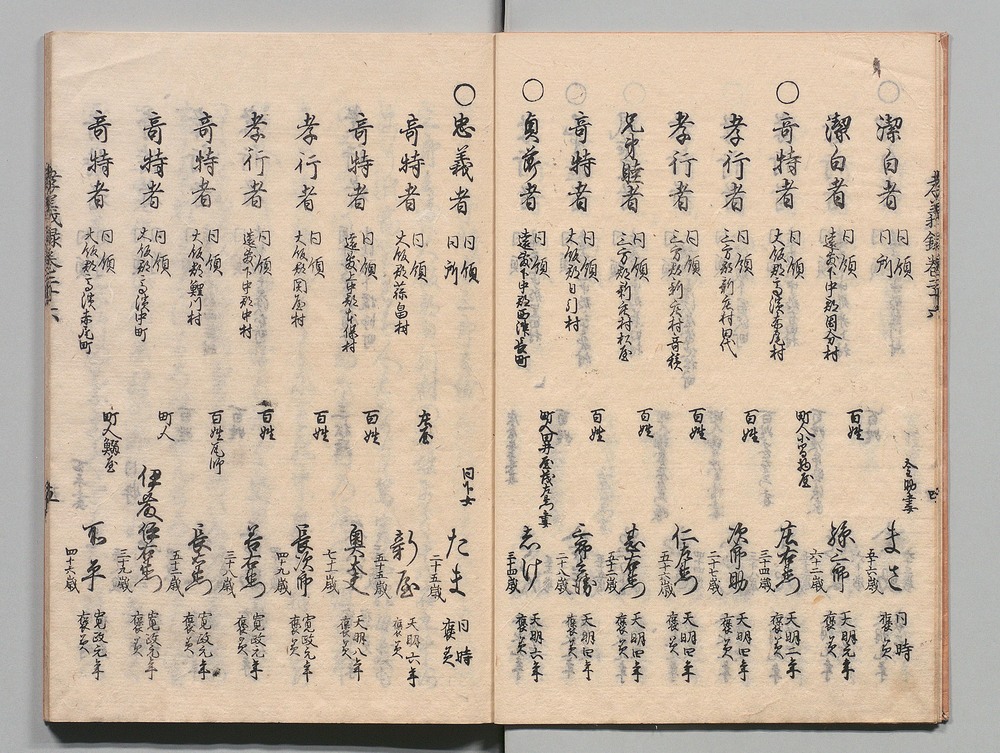 潔白者 同領同所 [冬]助妻 まさ 五十六歳 同時褒美
潔白者 同領遠敷下中郡国分村 百姓 孫三郎 六十二歳 天明元年褒美
奇特者 同領大飯郡高浜赤尾村 町人小間物屋 庄右衛門 三十四歳 天明二年褒美
孝行者 同領三方郡新庄村田代 百姓 次郎助 二十七歳 天明四年褒美
孝行者 同領三方郡新庄村奇積 百姓 仁右衛門 五十六歳 天明四年褒美
兄弟睦者 同領三方郡新庄村松屋 百姓 甚右衛門 五十五歳 天明四年褒美
奇特者 同領遠敷下中郡日引村 百姓 二十八歳 天明四年褒美
貞節者 同領遠敷下中郡西津長町 町人田井屋茂左衛門妻 三十四歳 天明六年褒美
孝義録巻三十六 四
忠義者 同領同所 同下女 たま 二十五歳 同時褒美
奇特者 同領大飯郡蒜畠村 庄屋 新屋 五十五歳 天明六年褒美
奇特者 同領遠敷上中郡本保村 百姓 奥太夫 七十歳 天明八年褒美
孝行者 同領大飯郡関屋村 百姓 長次郎 四十九歳 寛政元年褒美
孝行者 同領遠敷下中郡中村 百姓 若右衛門 三十八歳 寛政元年褒美
奇特者 同領大飯郡鯉川村 百姓瓦師 長右衛門 五十三歳 寛政元年褒美
奇特者 同領大飯郡高浜中町 町人 伊藤伊右衛門 三十九歳 寛政元年褒美
奇特者 同領大飯郡高浜赤尾町 町人鰯屋 四十六歳 寛政元年褒美
孝義録巻三十六 五